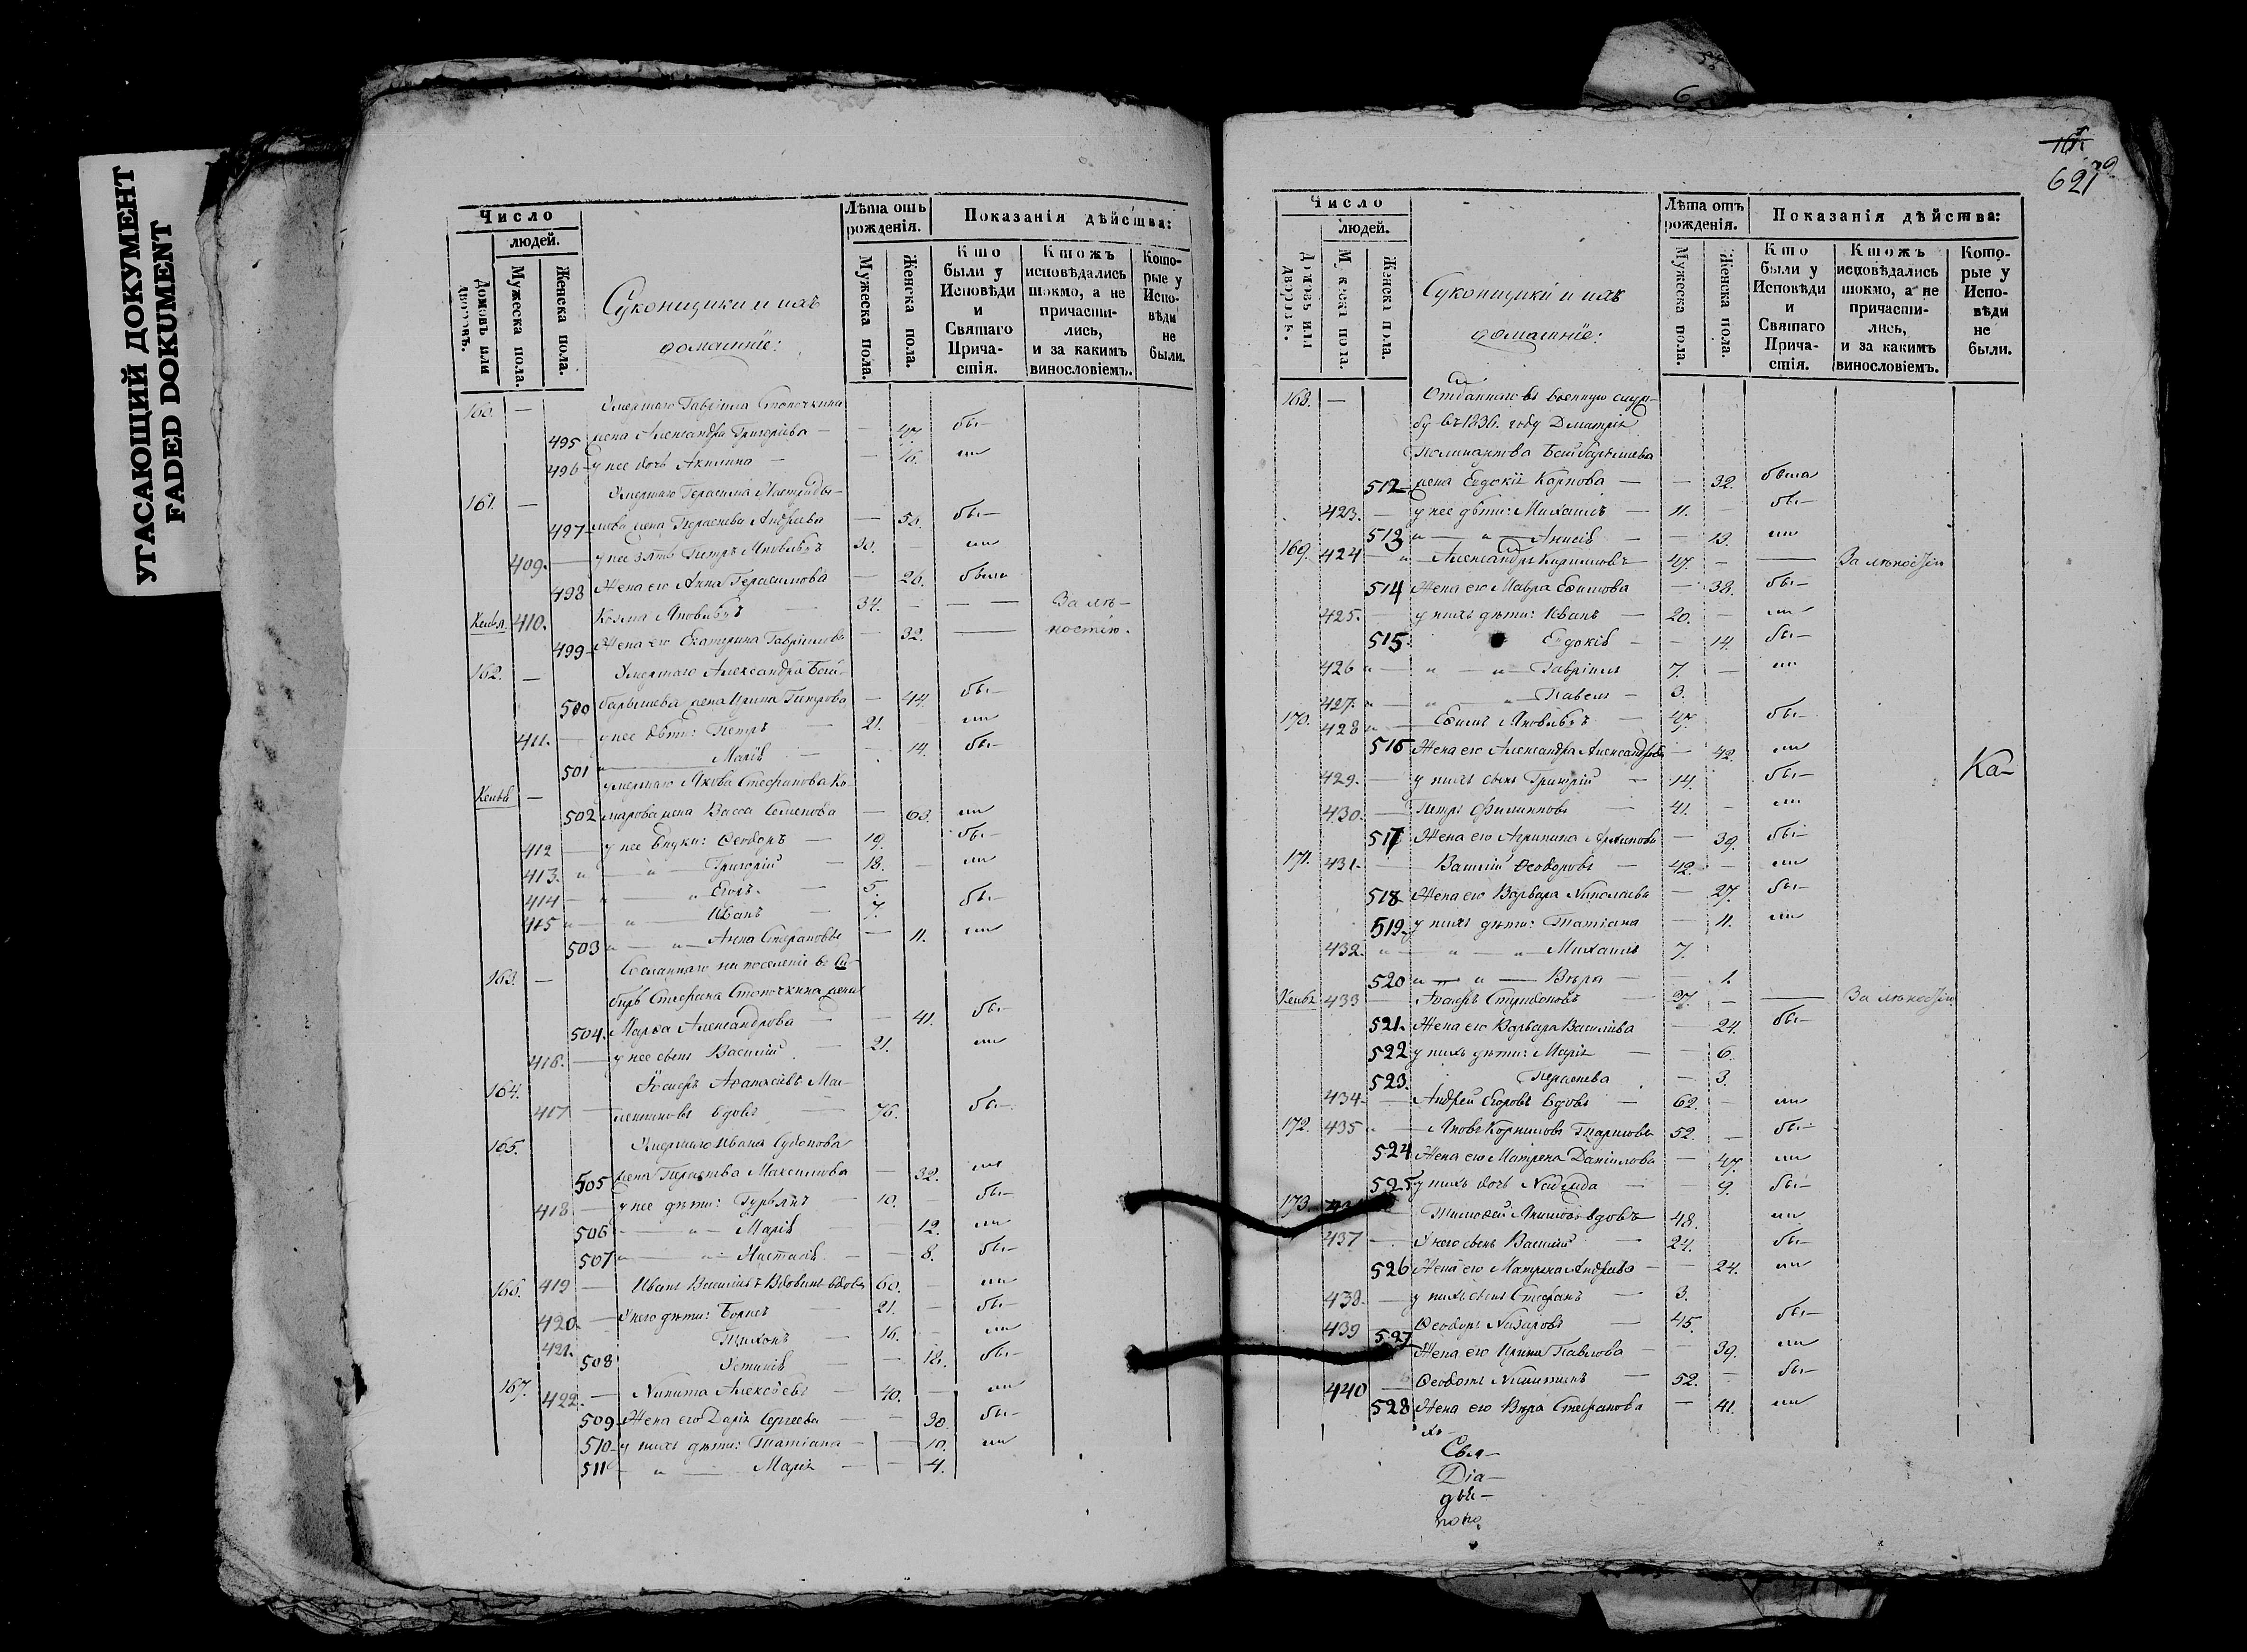 УГАСАЮЩИЙ ДОКУМЕНТ
FADED DOKUMENT
Число
людей.
Домовъ или дворовъ.
Мужеска пола.
Женска пола.
Суконщики и ихъ
домашніе:
Лѣта отъ рожденія.
Мужеска пола.
Женска пола.
Показанія дѣйства:
Кто были у Исповѣди и Святаго Прича-стія.
Ктожъ исповѣдались токмо, а не причасти-лись, и за какимъ винословіемъ.
Кото-рые у Испо-вѣди не были.
160. — Умершаго Гавріила Стопочкина
495 жена Александра Григорьева — — 47. бы-
496 у нее дочь Акилина — — 16. ли
161. — Умершаго Герасима
497 жена Параскева Андреева — 50. бы-
409. — у нее зять Петръ Яковлевъ 30. — ли
498 Жена его Анна Герасимова — 26. были
Келья. 410. Козма Яковлевъ — 34. — — — За лѣ-
499 Жена его Екатерина Гавріилова — 32. — ностію.
162. — Умершаго Александра Бай-
500 барышева жена Ирина Петрова — 44. бы-
411. — у нее дѣти: Петръ — 21. ли
501 Марія — 14. бы-
Келья — умершаго Якова Стефанова Ко-
502 марова жена Васса Семенова — 63. ли
412 — у нее внуки: Ѳеодоръ — 19. бы-
413. " — " — Григорій — 18. — ли
414 — " — " Егоръ. — 5.
415 " — " — Иванъ — 7. бы-
503 " — " — Анна Стефановы — 11. ли
163. — Сосланнаго на поселеніе въ Си-
бирь Стефана Стопочкина жена
504. Марѳа Александрова — — 41. бы-
416. — у нее сынъ Василій — 21. ли
164. Іосифъ
417 — вдовъ — 76. бы-
165. Умершаго Ивана
505 жена Параскева Максимова — 32. ли
418 — у нее дѣти: — 10. — бы-
506 — " — Марія 12. ли
507 " — " — — 8. бы-
166. 419 — Иванъ Васильевъ вдовъ 60. — ли
420. — У него дѣти: Борисъ — 21. — бы-
421. Тихонъ — 16. — ли
508 Устинія — — 18. бы-
167. 422. — Никита Алексѣевъ — 40. — ли
509 Жена его Дарія Сергеева — — 30. бы-
510 у нихъ дѣти: Татіана — — 10. ли
511 — " — Марія — — 4.
621
Число
людей.
Домовъ или дворовъ.
Мужеска пола.
Женска пола.
Суконщики и ихъ
домашніе:
Лѣта отъ рожденія.
Мужеска пола.
Женска пола.
Показанія дѣйства:
Кто были у Исповѣди и Святаго Прича-стія.
Ктожъ исповѣдались токмо, а не причасти-лись, и за какимъ винословіемъ.
Кото-рые у Испо-вѣди не были.
168. — Отданнаго въ военную служ-
бу въ 1836. году Дмитрія
512 жена Евдокія Карпова — — 32. была
423. — у нее дѣти: Михаилъ — 11. — бы-
513 " — " — Анисія — — 13. ли
169. 424 — " — Александръ Кириловъ — 47. — — За лѣностію
514 Жена его Мавра Еѳимова — 38. бы-
425. — у нихъ дѣти: Иванъ — 20. — ли
515 Евдокія — — 14. бы-
426 " — " — " — Гавріилъ 7. — ли
427. " — " — Павелъ — 3.
170. 428 " — Еѳимъ Яковлевъ — 45. бы-
516 Жена его Александра Александрова — 42. ли
429. — у нихъ сынъ Григорій — 14. бы- Ка-
430. — Петръ Филипповъ — 41. — ли
517 Жена его Агрипина Архипова — 39. бы-
171. 431. — Василій Ѳеодоровъ — 42. — ли
518 Жена его Варвара Николаева — 27. бы-
519. у нихъ дѣти: Татіана — 11. ли
432. " — " — " — Михаилъ 7.
520 " — " — Вѣра — — 1.
Келья 433 — Іосифъ — 37. — — За лѣностію
521. Жена его Варвара Васильева — 24. бы-
522 у нихъ дѣти: Марія — — 6.
523. Параскева — 3.
434. — Андрей Егоровъ вдовъ — 62. — ли
172. 435 " — Яковъ Корниловъ 52. — бы-
524 Жена его Матрена Даніилова — 47. ли
525 у нихъ дочь Надежда — — 9. бы-
173. 436 Тимоѳей вдовъ 48. ли
437 — У него сынъ Василій — 24. бы-
526 Жена его Матрена Андреева — — 24. ли
438. — у нихъ сынъ Стефанъ — 3.
439 Ѳеодоръ Назаровъ — 45. бы-
527 Жена его Ирина Павлова — — 39. ли
440 — Ѳеодотъ Никитинъ — 52. — бы-
528 Жена его Вѣра Стефанова — 41. ли
Свя-
Діа-